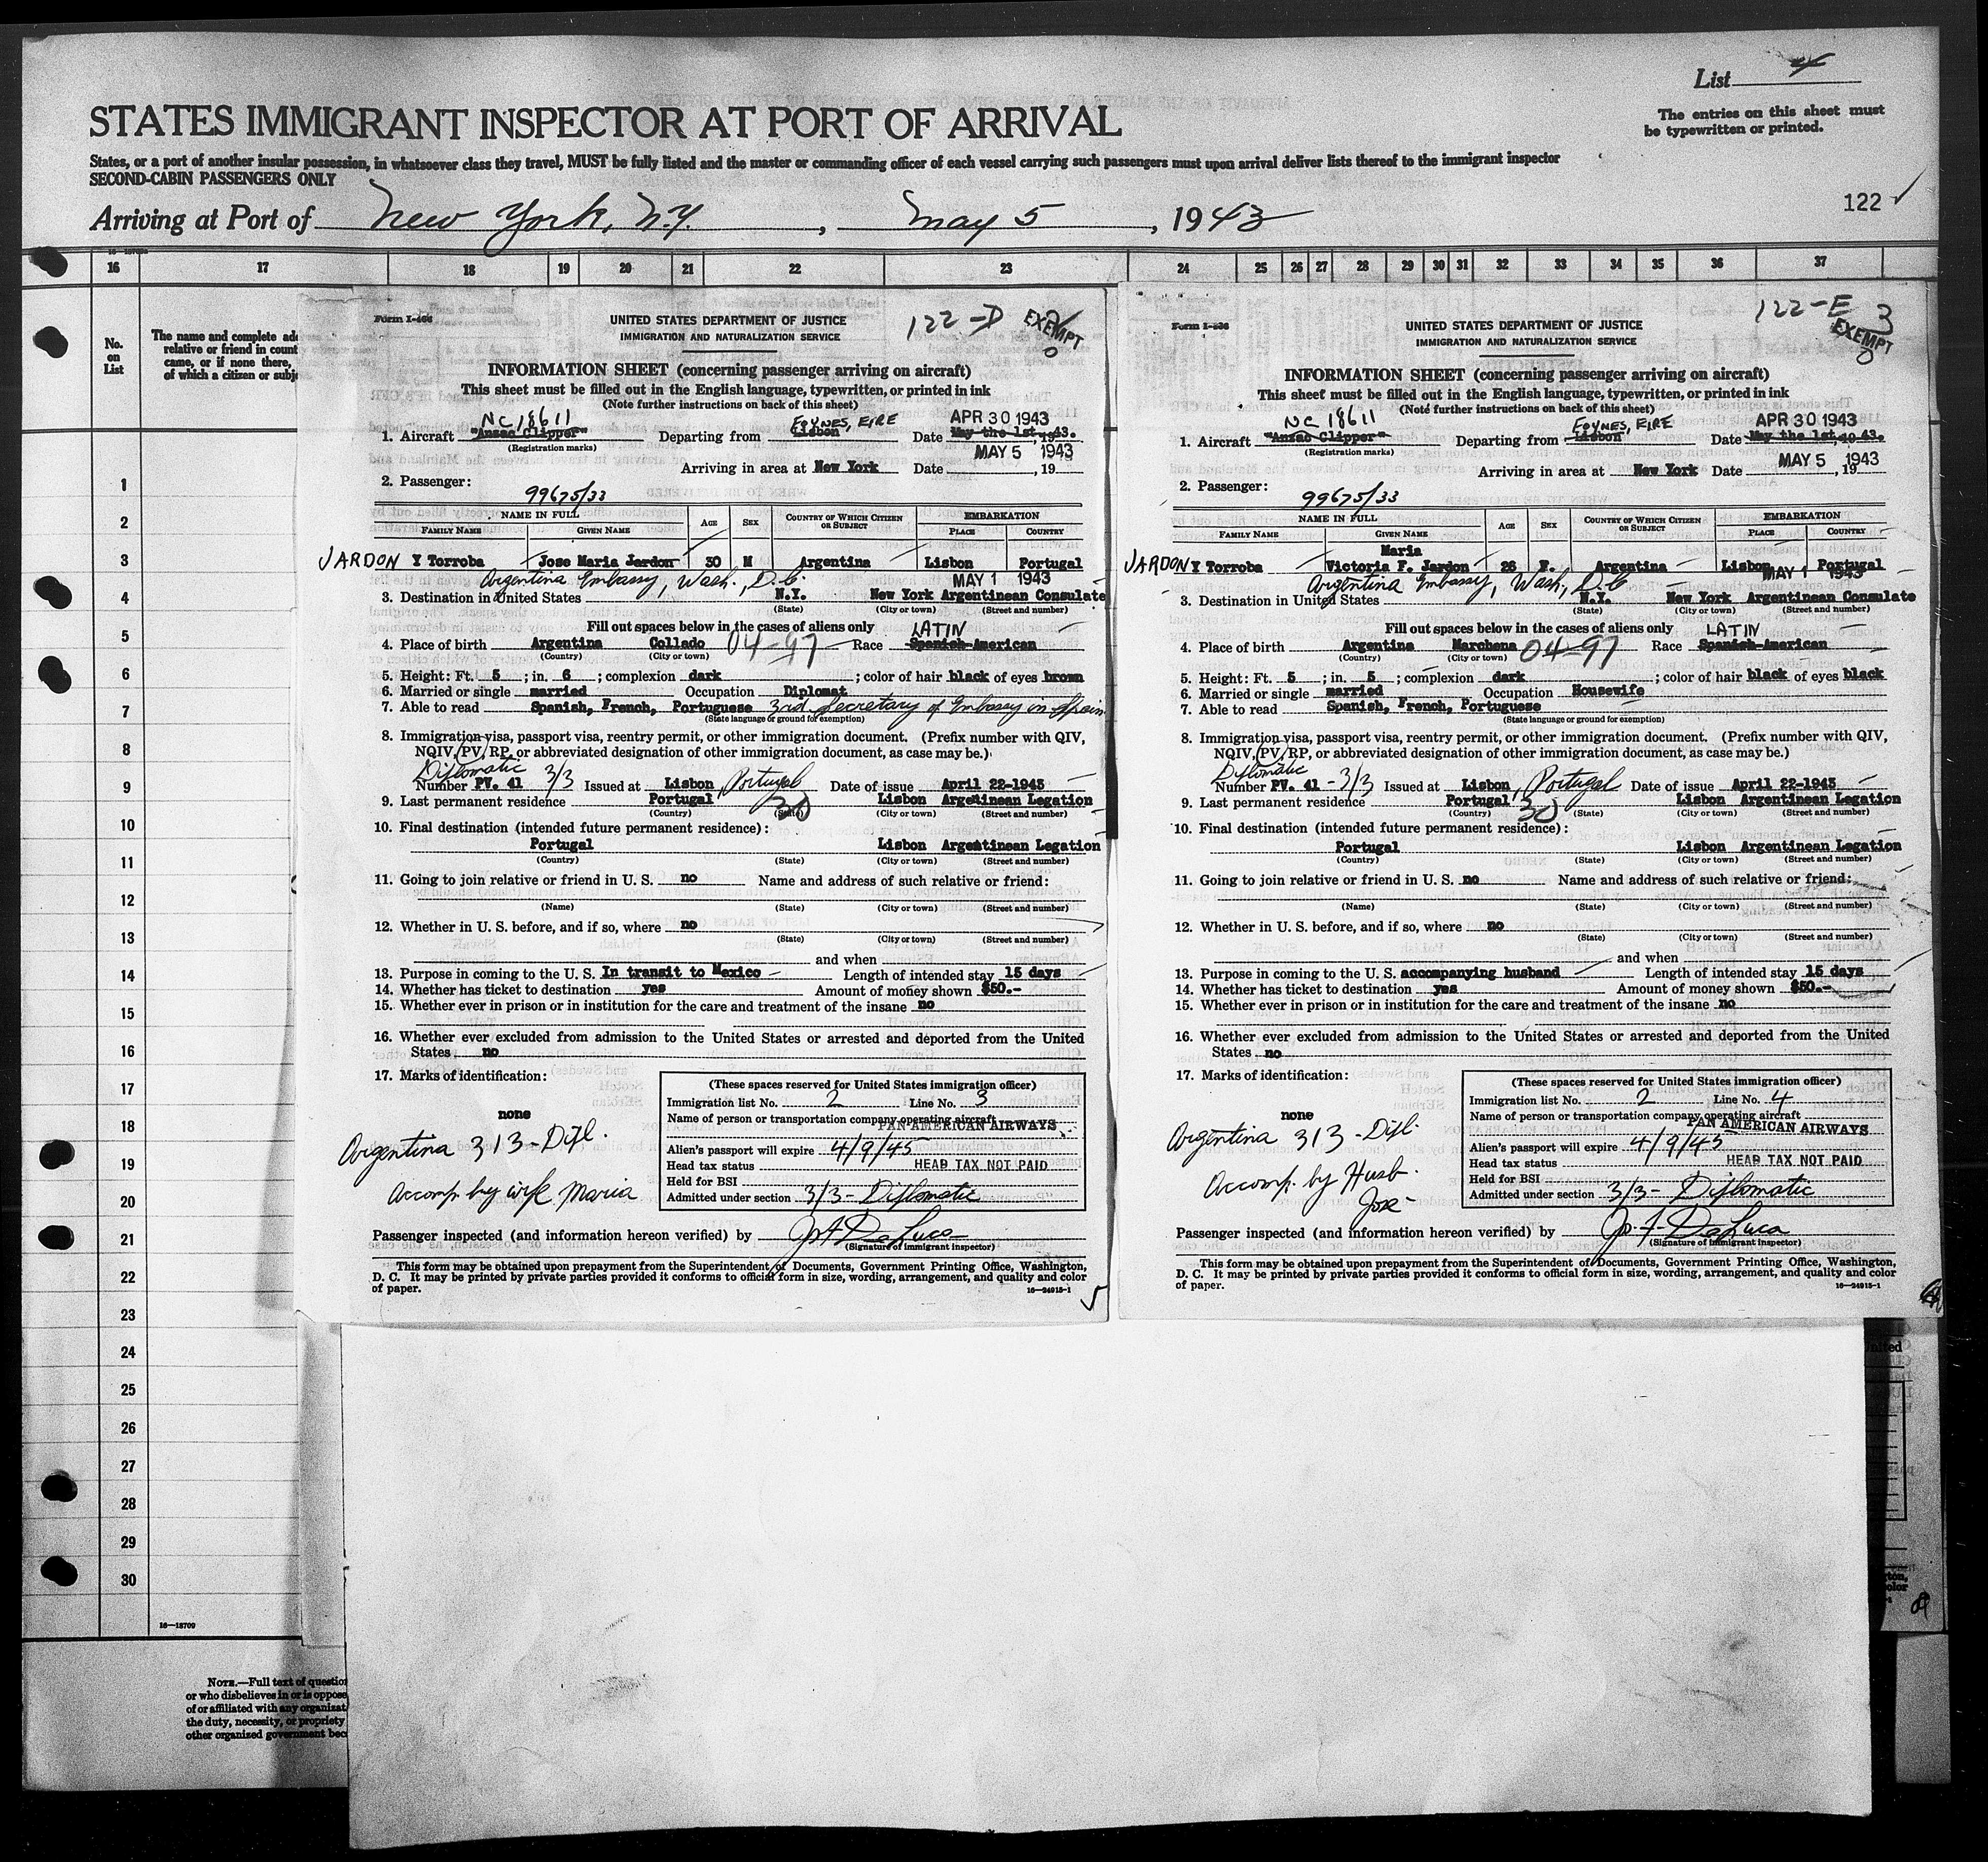 List 4
The entries on this sheet must
be typewritten or printed.
STATES IMMIGRANT INSPECTOR AT PORT OF ARRIVAL
States, or a port of another insular possession, in whatsoever class they travel, MUST be fully listed and the master or commanding officer of each vessel carrying such passengers must upon arrival deliver lists thereof to the immigrant inspector
SECOND-CABIN PASSENGERS ONLY
Arriving at Port of New York, N.Y. , May 5 , 1943
122
16 17 18 19 20 21 22 23 24 25 26 27 28 29 30 31 32 33 34 35 36 37
No.
on
List
The name and complete add
relative or friend in count
came, or if none there,
of which a citizen or subje
1
2
3
4
5
6
7
8
9
10
11
12
13
14
15
16
17
18
19
20
21
22
23
24
25
26
27
28
29
30
16—18709
NOTE.—Full text of question
or who disbelieves in or is oppose
of or affiliated with any organizat
the duty, necessity, or propriety
other organized government bec
122-D
EXEMPT
UNITED STATES DEPARTMENT OF JUSTICE
IMMIGRATION AND NATURALIZATION SERVICE
INFORMATION SHEET (concerning passenger arriving on aircraft)
This sheet must be filled out in the English language, typewritten, or printed in ink
(Note further instructions on back of this sheet)
NC 18611 FOYNES, EIRE APR 30 1943
1. Aircraft "Anzac Clipper" Departing from Lisbon Date May the 1st, 1943.
(Registration marks) MAY 5 1943
Arriving in area at New York Date , 19
2. Passenger:
99675/33
NAME IN FULL AGE SEX COUNTRY OF WHICH CITIZEN OR SUBJECT EMBARKATION
FAMILY NAME GIVEN NAME PLACE COUNTRY
JARDON Y Torroba Jose Maria Jardon 30 M Argentina Lisbon Portugal
Argentina Embassy, Wash., D.C. MAY 1 1943
3. Destination in United States N.Y. New York Argentinean Consulate
(State) (City or town) (Street and number)
Fill out spaces below in the cases of aliens only LATIN
4. Place of birth Argentina Collado 04-97 Race Spanish-American
(Country) (City or town)
5. Height: Ft. 5 ; in. 6 ; complexion dark ; color of hair black of eyes brown
6. Married or single married Occupation Diplomat
7. Able to read Spanish, French, Portuguese 3rd Secretary of Embassy in Spain
(State language or ground for exemption)
8. Immigration visa, passport visa, reentry permit, or other immigration document. (Prefix number with QIV,
NQIV, PV, RP, or abbreviated designation of other immigration document, as case may be.)
Diplomatic
Number PV. 41 3/3 Issued at Lisbon, Portugal Date of issue April 22-1943
9. Last permanent residence Portugal 30 Lisbon Argentinean Legation
(Country) (State) (City or town) (Street and number)
10. Final destination (intended future permanent residence):
Portugal Lisbon Argentinean Legation
(Country) (State) (City or town) (Street and number)
11. Going to join relative or friend in U. S. no Name and address of such relative or friend:
(Name) (State) (City or town) (Street and number)
12. Whether in U. S. before, and if so, where no
(State) (City or town) (Street and number)
and when
13. Purpose in coming to the U. S. In transit to Mexico Length of intended stay 15 days
14. Whether has ticket to destination yes Amount of money shown $50.-
15. Whether ever in prison or in institution for the care and treatment of the insane no
16. Whether ever excluded from admission to the United States or arrested and deported from the United
States no
17. Marks of identification:
none
Argentina 313-Dipl.
Accomp. by wife Maria
(These spaces reserved for United States immigration officer)
Immigration list No. 2 Line No. 3
Name of person or transportation company operating aircraft
PAN AMERICAN AIRWAYS
Alien's passport will expire 4/9/45
Head tax status HEAD TAX NOT PAID
Held for BSI
Admitted under section 3/3- Diplomatic
Passenger inspected (and information hereon verified) by De Luca
(Signature of immigrant inspector)
This form may be obtained upon prepayment from the Superintendent of Documents, Government Printing Office, Washington,
D. C. It may be printed by private parties provided it conforms to official form in size, wording, arrangement, and quality and color
of paper. 16—24915-1
122-E 3
EXEMPT
UNITED STATES DEPARTMENT OF JUSTICE
IMMIGRATION AND NATURALIZATION SERVICE
INFORMATION SHEET (concerning passenger arriving on aircraft)
This sheet must be filled out in the English language, typewritten, or printed in ink
(Note further instructions on back of this sheet)
NC 18611 FOYNES, EIRE APR 30 1943
1. Aircraft "Anzac Clipper" Departing from Lisbon Date May the 1st, 1943.
(Registration marks) MAY 5 1943
Arriving in area at New York Date , 19
2. Passenger:
99675/33
NAME IN FULL AGE SEX COUNTRY OF WHICH CITIZEN OR SUBJECT EMBARKATION
FAMILY NAME GIVEN NAME PLACE COUNTRY
Maria
JARDON Y Torroba Victoria F. Jardon 26 F. Argentina Lisbon Portugal
Argentina Embassy, Wash., D.C MAY 1 1943
3. Destination in United States N.Y. New York Argentinean Consulate
(State) (City or town) (Street and number)
Fill out spaces below in the cases of aliens only LATIN
4. Place of birth Argentina Marchena 04-97 Race Spanish-American
(Country) (City or town)
5. Height: Ft. 5 ; in. 5 ; complexion dark ; color of hair black of eyes black
6. Married or single married Occupation Housewife
7. Able to read Spanish, French, Portuguese
(State language or ground for exemption)
8. Immigration visa, passport visa, reentry permit, or other immigration document. (Prefix number with QIV,
NQIV, PV, RP, or abbreviated designation of other immigration document, as case may be.)
Diplomatic
Number PV. 41 - 3/3 Issued at Lisbon, Portugal Date of issue April 22-1943
9. Last permanent residence Portugal 30 Lisbon Argentinean Legation
(Country) (State) (City or town) (Street and number)
10. Final destination (intended future permanent residence):
Portugal Lisbon Argentinean Legation
(Country) (State) (City or town) (Street and number)
11. Going to join relative or friend in U. S. no Name and address of such relative or friend:
(Name) (State) (City or town) (Street and number)
12. Whether in U. S. before, and if so, where no
(State) (City or town) (Street and number)
and when
13. Purpose in coming to the U. S. accompanying husband Length of intended stay 15 days
14. Whether has ticket to destination yes Amount of money shown $50.-
15. Whether ever in prison or in institution for the care and treatment of the insane no
16. Whether ever excluded from admission to the United States or arrested and deported from the United
States no
17. Marks of identification:
none
Argentina 313-Dipl.
Accomp. by Husb.
Jose
(These spaces reserved for United States immigration officer)
Immigration list No. 2 Line No. 4
Name of person or transportation company operating aircraft
PAN AMERICAN AIRWAYS
Alien's passport will expire 4/9/45
Head tax status HEAD TAX NOT PAID
Held for BSI
Admitted under section 3/3- Diplomatic
Passenger inspected (and information hereon verified) by De Luca
(Signature of immigrant inspector)
This form may be obtained upon prepayment from the Superintendent of Documents, Government Printing Office, Washington,
D. C. It may be printed by private parties provided it conforms to official form in size, wording, arrangement, and quality and color
of paper. 16—24915-1